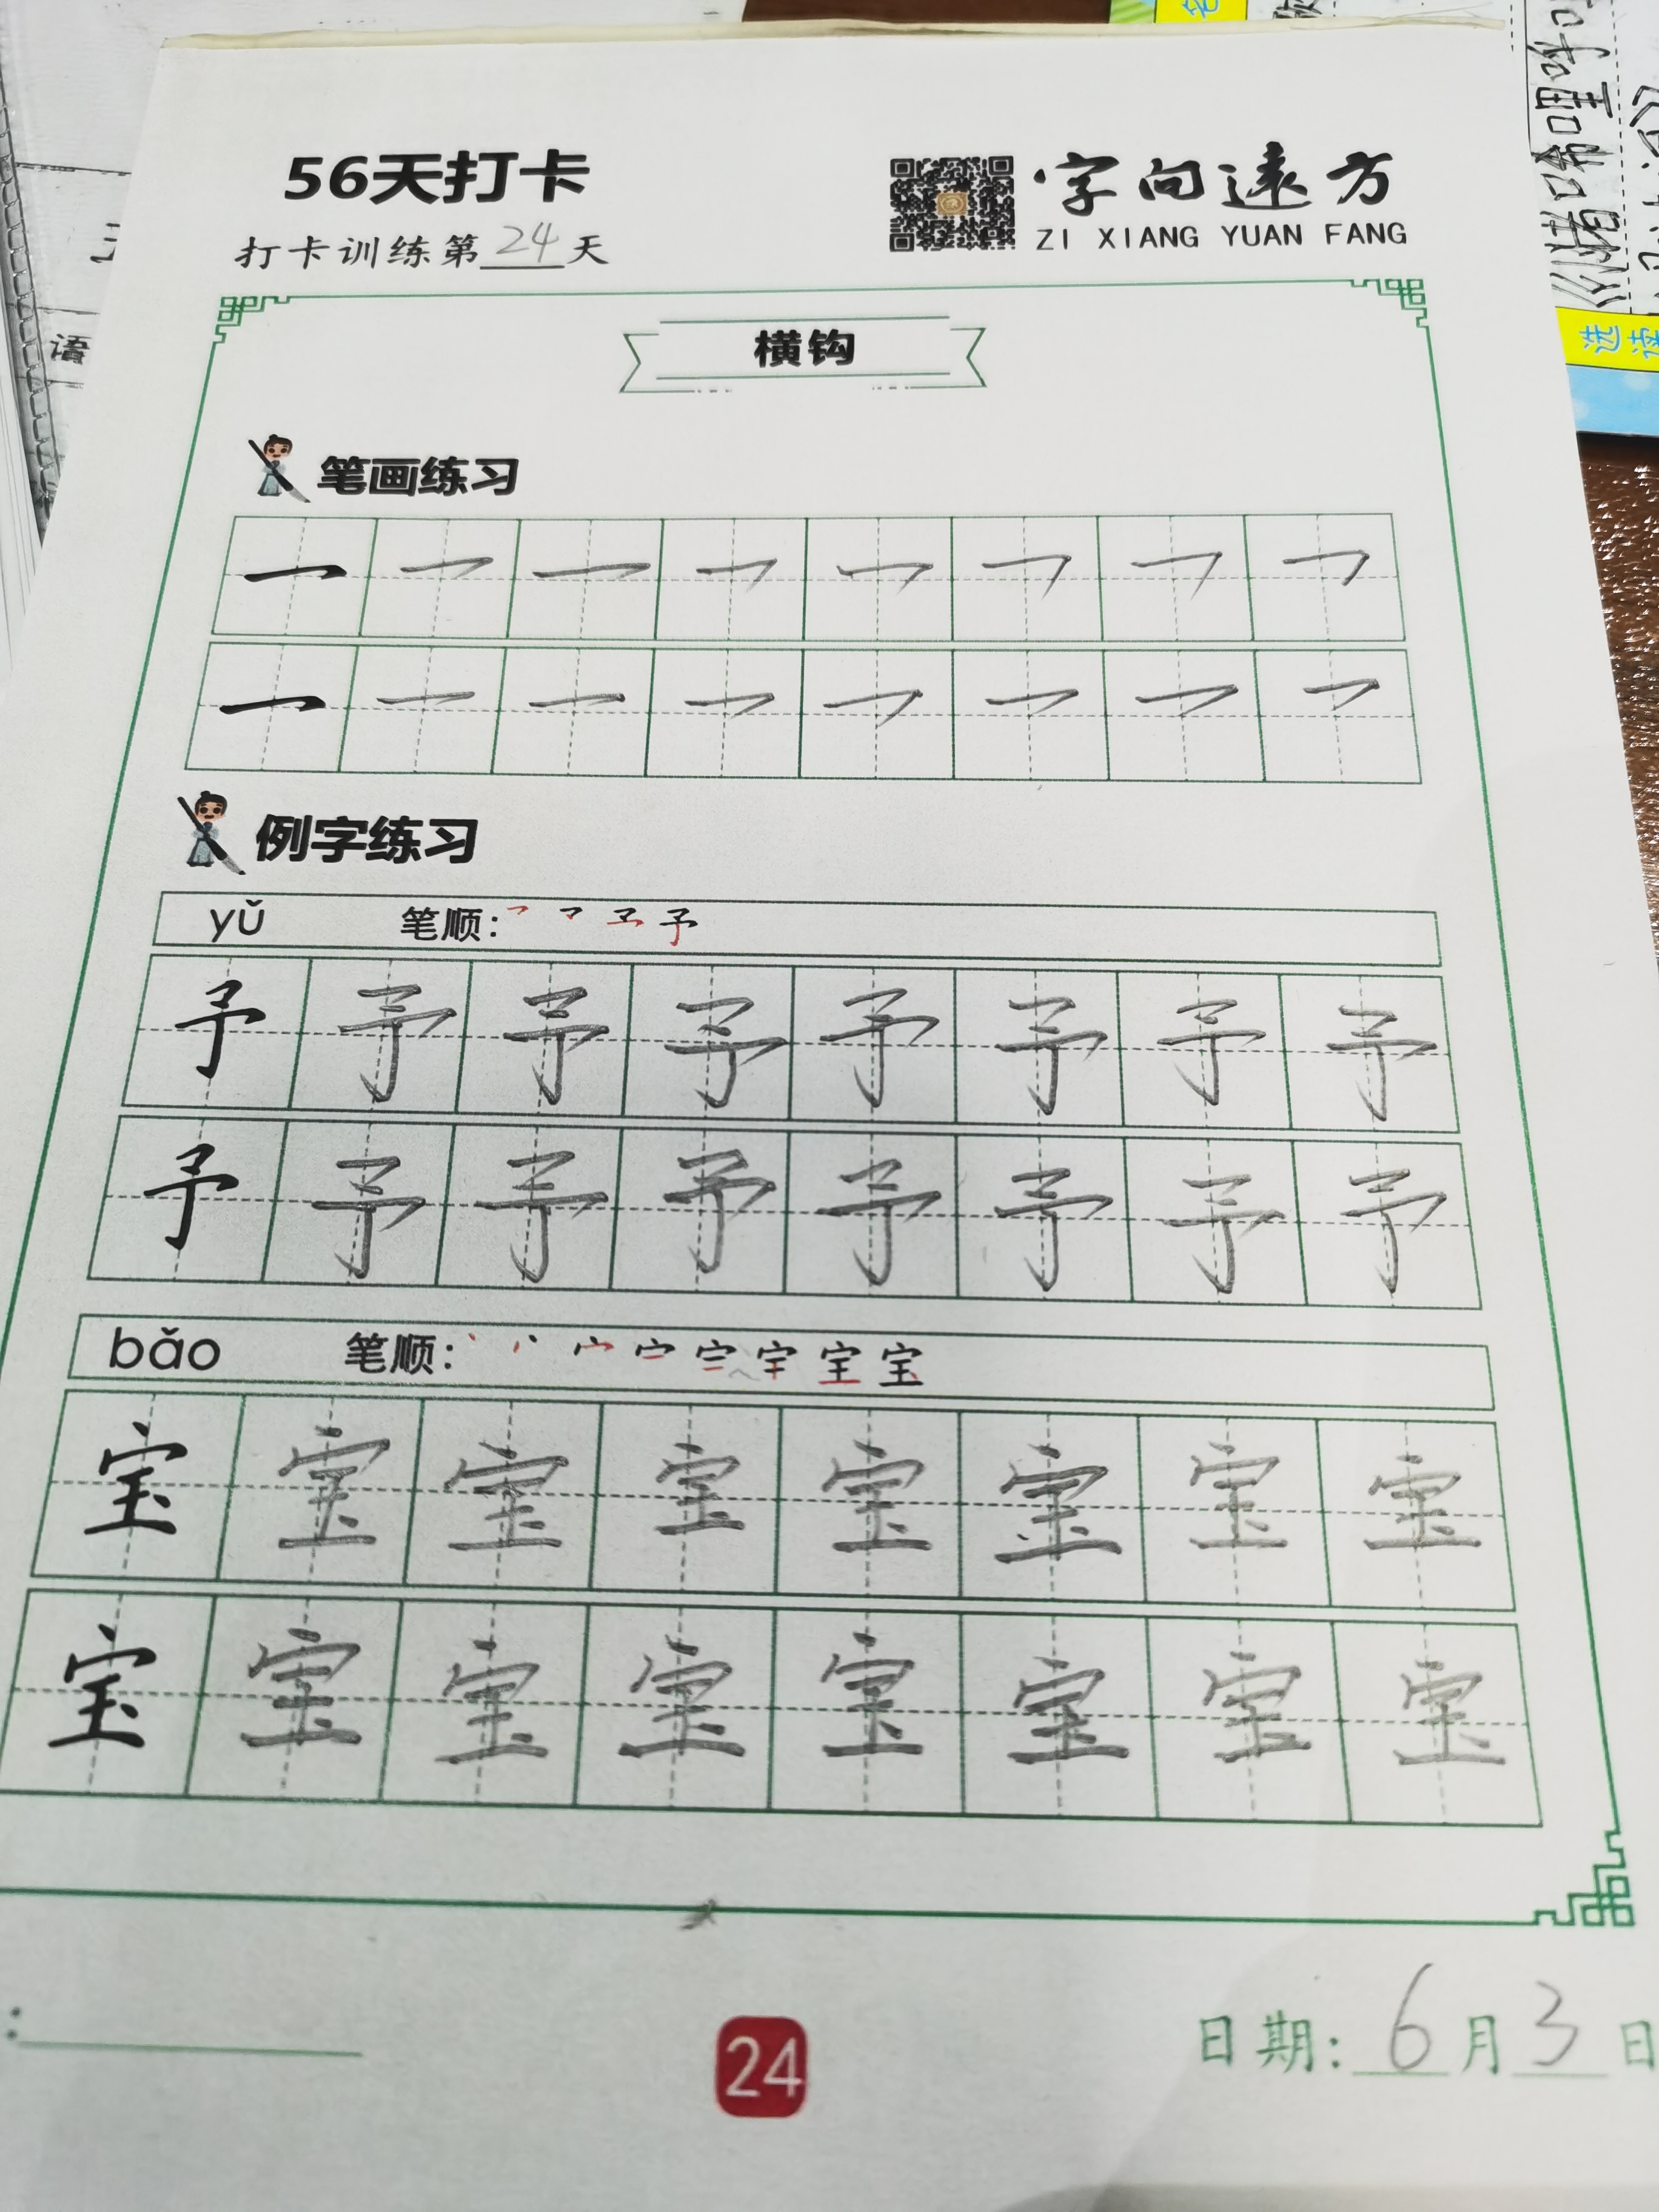 56天打卡
字向远方
ZI XIANG YUAN FANG
打卡训练第24天
横钩
笔画练习
例字练习
yǔ 笔顺: 予
予 予 予 予 予 予 予 予
予 予 予 予 予 予 予 予
bǎo 笔顺: 宝
宝 宝 宝 宝 宝 宝 宝 宝
宝 宝 宝 宝 宝 宝 宝 宝
24
日期: 6月3日
语
选